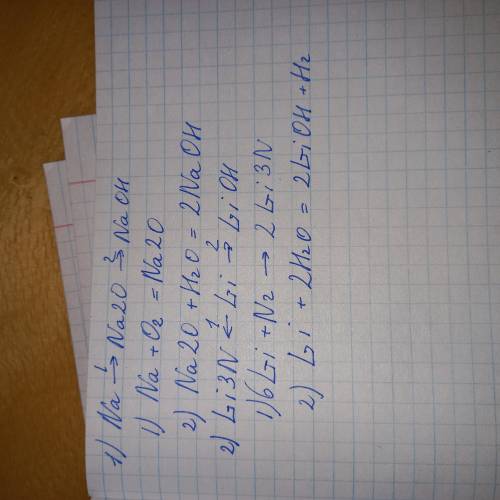 1) Na →1 Na2O →2 NaOH
1) Na + O2 = Na2O
2) Na2O + H2O = 2NaOH
2) Li3N ←1 Li →2 LiOH
1) 6Li + N2 → 2Li3N
2) Li + 2H2O = 2LiOH + H2